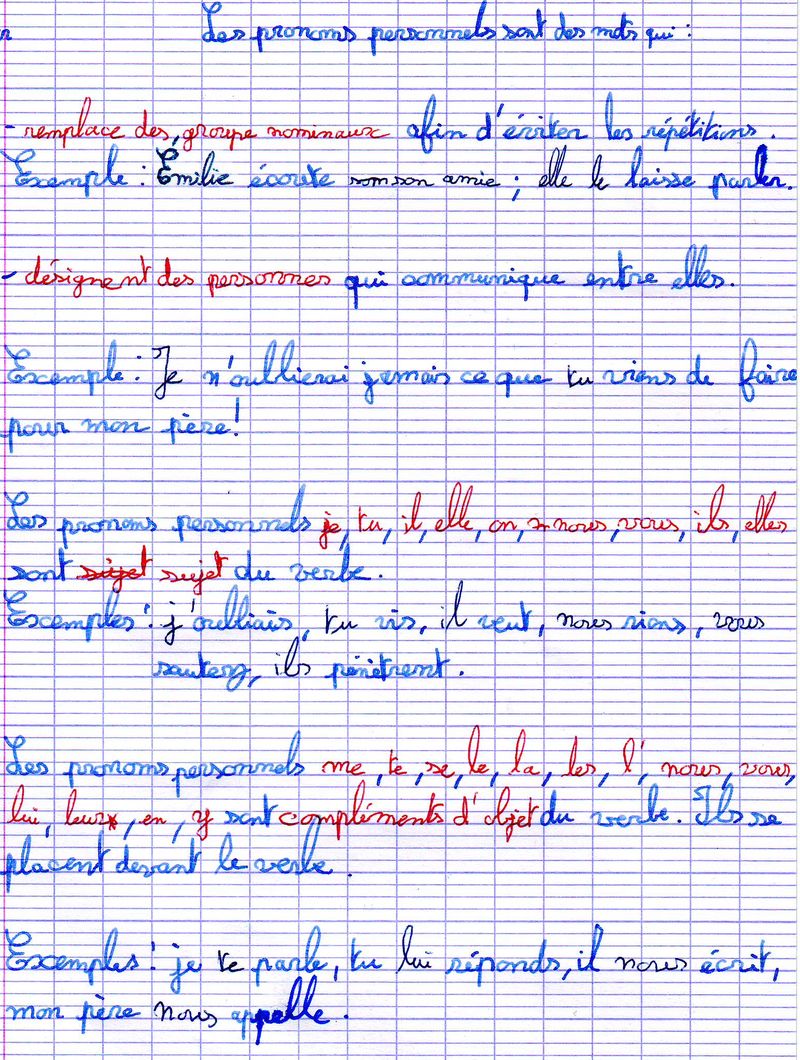 Les pronoms personnels sont des mots qui :
- remplace des groupe nominaux afin d'éviter les répétitions.
Exemple : Émilie écoute son amie ; elle le laisse parler.
- désignent des personnes qui communique entre elles.
Exemple : Je n'oublierai jamais ce que tu viens de faire
pour mon père!
Les pronoms personnels je, tu, il, elle, on, nous, vous, ils, elles
sont sujet sujet du verbe.
Exemples : j'oubliais, tu vis, il veut, nous rions, vous
sautez, ils pénètrent.
Les pronoms personnels me, te, se, le, la, les, l', nous, vous,
lui, leur, en, y sont compléments d'objet du verbe. Ils se
placent devant le verbe.
Exemples : je te parle, tu lui réponds, il nous écrit,
mon père nous appelle.